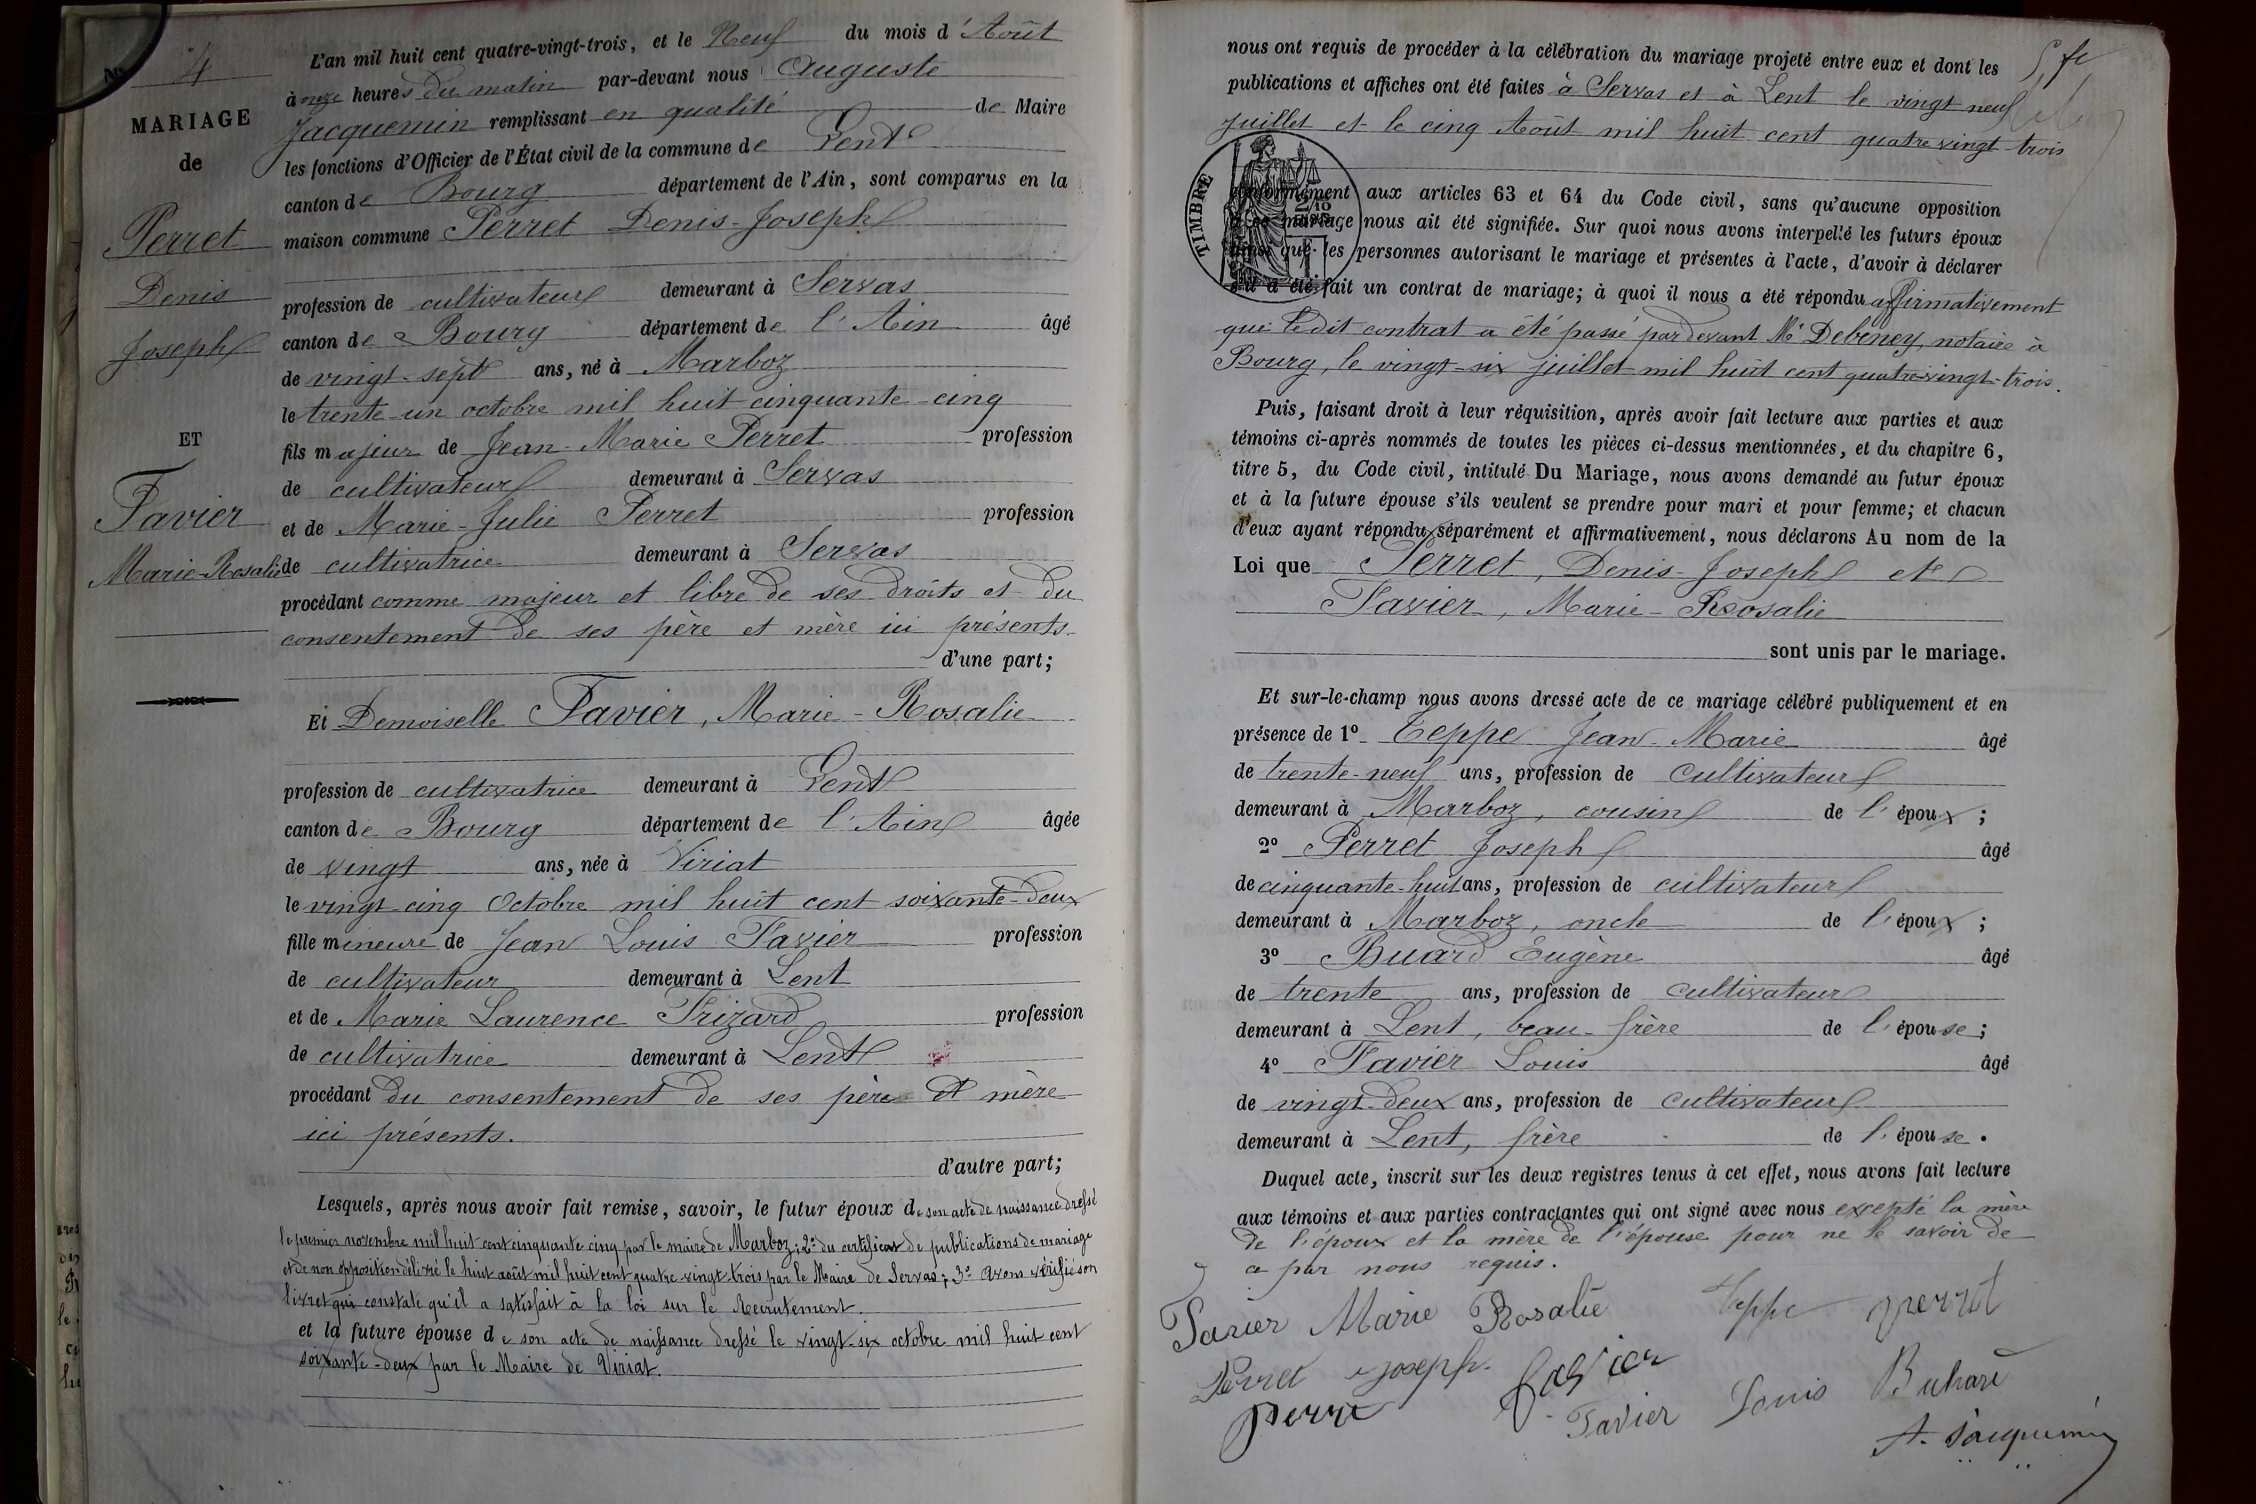 No 4
MARIAGE
de
Perret
Denis
Joseph
ET
Favier
Marie-Rosalie
L'an mil huit cent quatre-vingt-trois, et le Neuf du mois d'Août
à onze heures du matin par-devant nous Auguste
Jacquemin remplissant en qualité de Maire
les fonctions d'Officier de l'État civil de la commune de Lent
canton de Bourg département de l'Ain, sont comparus en la
maison commune Perret Denis-Joseph
profession de cultivateur demeurant à Servas
canton de Bourg département de l'Ain âgé
de vingt-sept ans, né à Marboz
le trente-un octobre mil huit cinquante-cinq
fils majeur de Jean-Marie Perret profession
de cultivateur demeurant à Servas
et de Marie-Julie Perret profession
de cultivatrice demeurant à Servas
procédant comme majeur et libre de ses droits et du
consentement de ses père et mère ici présents
d'une part;
Et Demoiselle Favier, Marie-Rosalie
profession de cultivatrice demeurant à Lent
canton de Bourg département de l'Ain âgée
de vingt ans, née à Viriat
le vingt-cinq Octobre mil huit cent soixante-deux
fille mineure de Jean Louis Favier profession
de cultivateur demeurant à Lent
et de Marie Laurence Frizard profession
de cultivatrice demeurant à Lent
procédant du consentement de ses père et mère
ici présents.
d'autre part;
Lesquels, après nous avoir fait remise, savoir, le futur époux de son acte de naissance dressé
le premier novembre mil huit cent cinquante cinq par le maire de Marboz; 2º du certificat de publications de mariage
et de non opposition délivré le huit août mil huit cent quatre-vingt-trois par le Maire de Servas; 3º avons vérifié son
livret qui constate qu'il a satisfait à la loi sur le Recrutement.
et la future épouse de son acte de naissance dressé le vingt-six octobre mil huit cent
soixante-deux par le Maire de Viriat.
nous ont requis de procéder à la célébration du mariage projeté entre eux et dont les
publications et affiches ont été faites à Servas et à Lent le vingt neuf
juillet et le cinq Août mil huit cent quatre vingt trois
TIMBRE
conformément aux articles 63 et 64 du Code civil, sans qu'aucune opposition
à ce mariage nous ait été signifiée. Sur quoi nous avons interpellé les futurs époux
ainsi que les personnes autorisant le mariage et présentes à l'acte, d'avoir à déclarer
s'il a été fait un contrat de mariage; à quoi il nous a été répondu affirmativement
que ledit contrat a été passé par devant Me Debeney, notaire à
Bourg, le vingt-six juillet mil huit cent quatre-vingt-trois.
Puis, faisant droit à leur réquisition, après avoir fait lecture aux parties et aux
témoins ci-après nommés de toutes les pièces ci-dessus mentionnées, et du chapitre 6,
titre 5, du Code civil, intitulé Du Mariage, nous avons demandé au futur époux
et à la future épouse s'ils veulent se prendre pour mari et pour femme; et chacun
d'eux ayant répondu séparément et affirmativement, nous déclarons Au nom de la
Loi que Perret, Denis-Joseph et
Favier, Marie-Rosalie
sont unis par le mariage.
Et sur-le-champ nous avons dressé acte de ce mariage célébré publiquement et en
présence de 1º Teppe Jean-Marie âgé
de trente-neuf ans, profession de cultivateur
demeurant à Marboz, cousin de l'époux;
2º Perret Joseph âgé
de cinquante-huit ans, profession de cultivateur
demeurant à Marboz, oncle de l'époux;
3º Buard Eugène âgé
de trente ans, profession de cultivateur
demeurant à Lent, beau-frère de l'épouse;
4º Favier Louis âgé
de vingt-deux ans, profession de cultivateur
demeurant à Lent, frère de l'épouse.
Duquel acte, inscrit sur les deux registres tenus à cet effet, nous avons fait lecture
aux témoins et aux parties contractantes qui ont signé avec nous excepté la mère
de l'époux et la mère de l'épouse pour ne le savoir de
ce par nous requis.
Favier Marie Rosalie Teppe perret
Perret joseph. favier
perret Favier Louis Buhard
A. Jacquemin